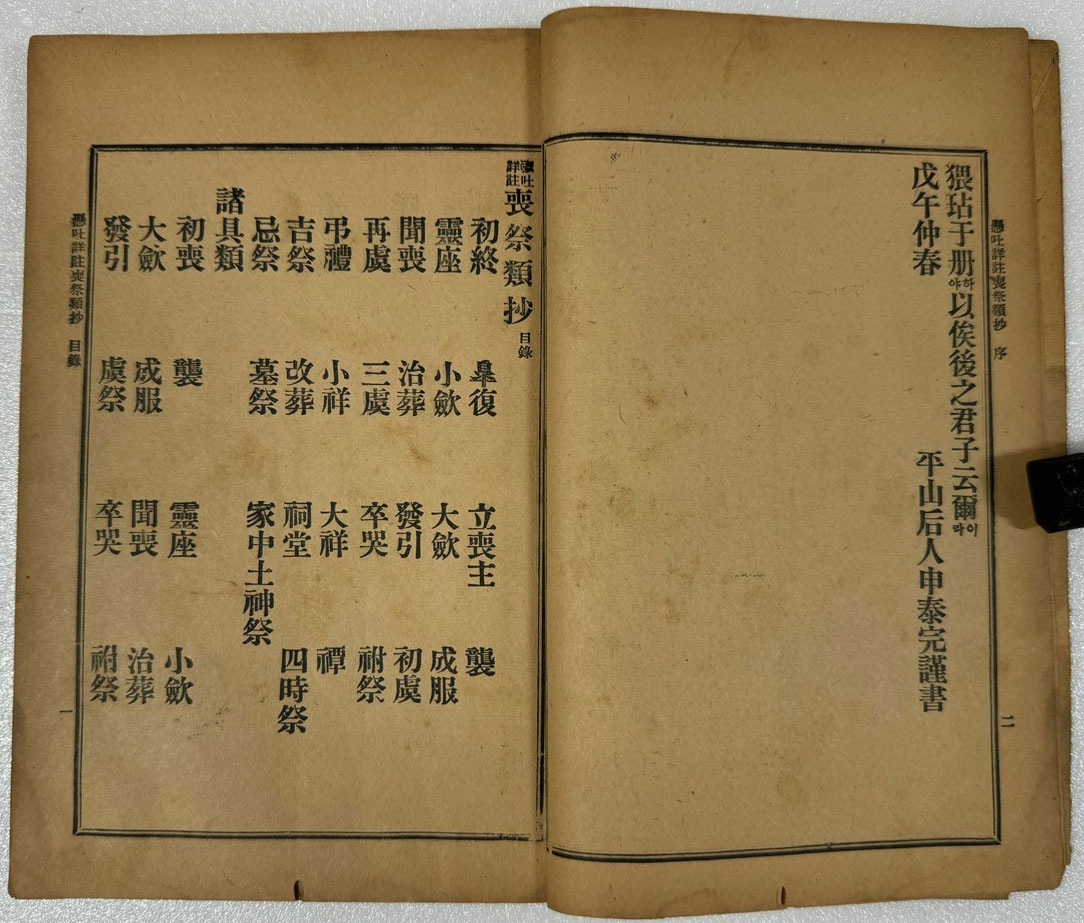 懸吐詳註喪祭類抄 序
二
猥玷于册하야以俟後之君子云爾이라
戊午仲春 平山后人申泰完謹書
懸吐詳註喪祭類抄 目錄
初終 皐復 立喪主 襲
靈座 小歛 大歛 成服
聞喪 治葬 發引 初虞
再虞 三虞 卒哭 祔祭
弔禮 小祥 大祥 禫
吉祭 改葬 祠堂 四時祭
忌祭 墓祭 家中土神祭
諸具類
初喪 襲 靈座 小歛
大歛 成服 聞喪 治葬
發引 虞祭 卒哭 祔祭
懸吐詳註喪祭類抄 目錄
一